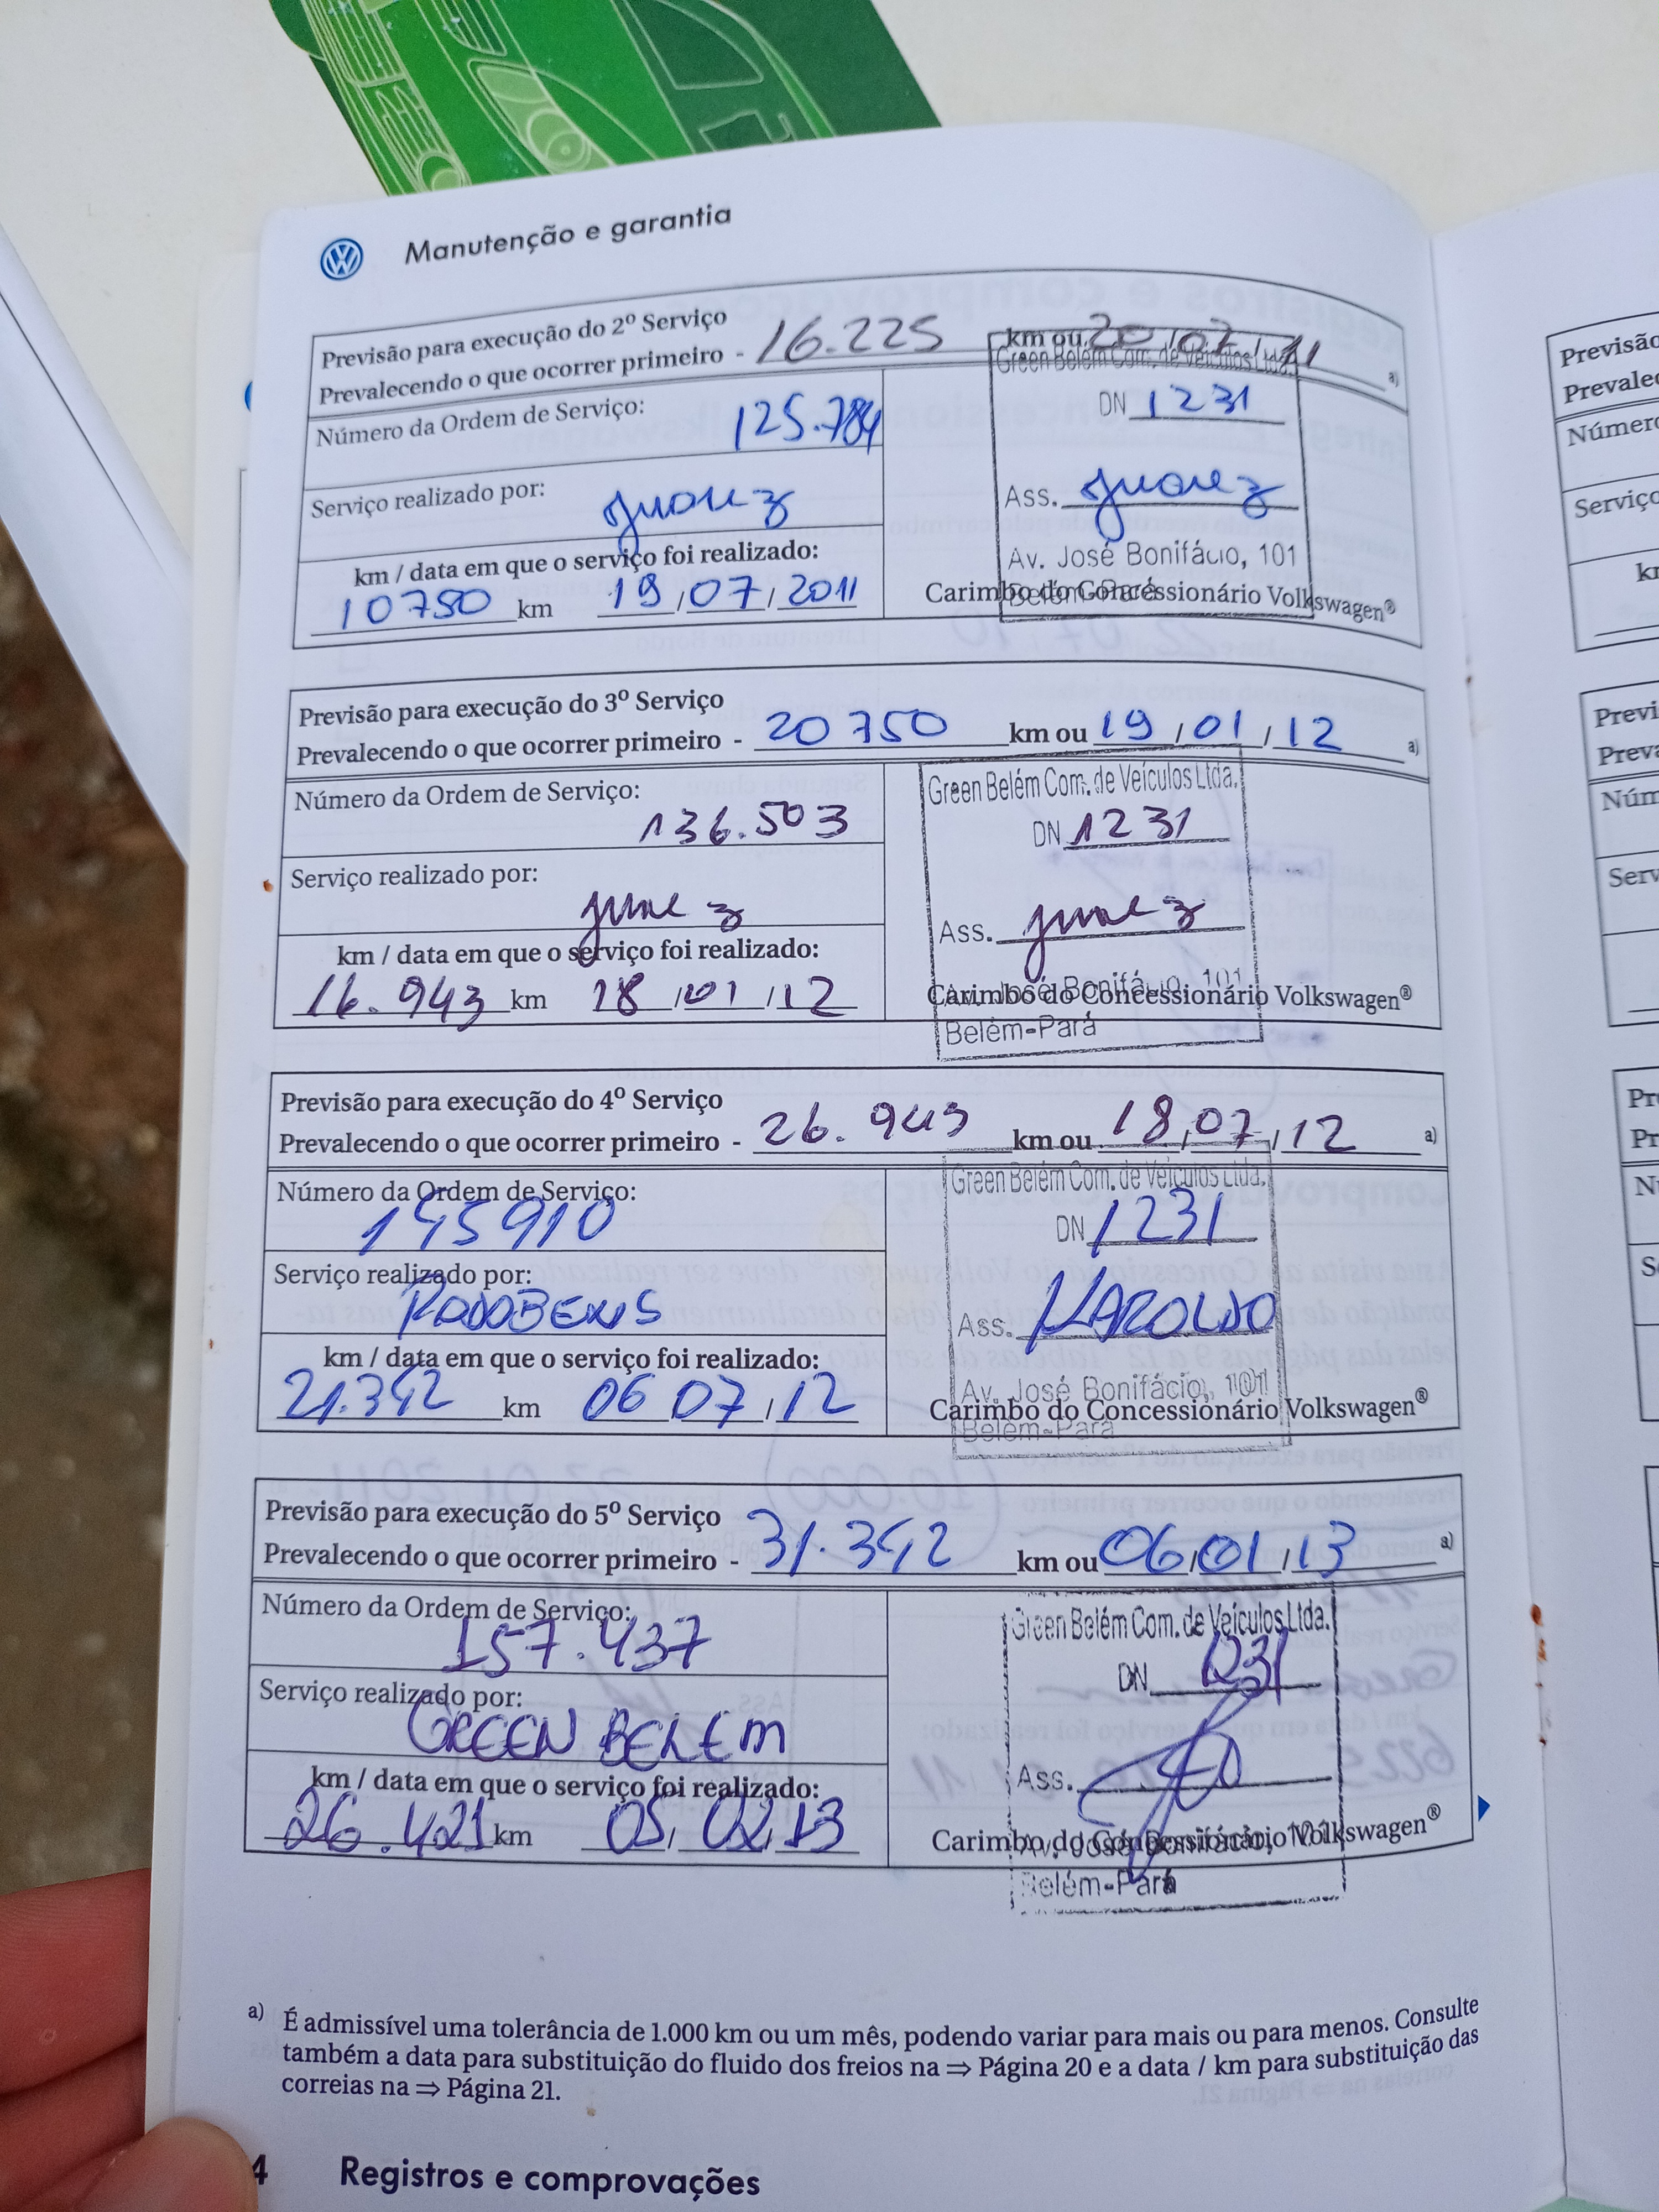 Manutenção e garantia
Previsão para execução do 2º Serviço
Prevalecendo o que ocorrer primeiro - 16.225 km ou 20/07/11 a)
Green Belém Com. de Veículos Ltda.
Número da Ordem de Serviço: 125.784
DN 1231
Serviço realizado por: Juarez
Ass. Juarez
Av. José Bonifácio, 101
Belém-Pará
km / data em que o serviço foi realizado:
10750 km 19/07/2011
Carimbo do Concessionário Volkswagen®
Previsão para execução do 3º Serviço
Prevalecendo o que ocorrer primeiro - 20750 km ou 19/01/12 a)
Green Belém Com. de Veículos Ltda.
Número da Ordem de Serviço: 136.503
DN 1231
Serviço realizado por: Juarez
Ass. Juarez
km / data em que o serviço foi realizado:
16.943 km 18/01/12
Av. José Bonifácio, 101
Carimbo do Concessionário Volkswagen®
Belém-Pará
Previsão para execução do 4º Serviço
Prevalecendo o que ocorrer primeiro - 26.943 km ou 18/07/12 a)
Green Belém Com. de Veículos Ltda.
Número da Ordem de Serviço: 145910
DN 1231
Serviço realizado por: RODOBENS
Ass.
km / data em que o serviço foi realizado:
21.342 km 06 07/12
Av. José Bonifácio, 101
Carimbo do Concessionário Volkswagen®
Belém-Pará
Previsão para execução do 5º Serviço
Prevalecendo o que ocorrer primeiro - 31.342 km ou 06/01/13 a)
Green Belém Com. de Veículos Ltda.
Número da Ordem de Serviço: 157.437
DN 1231
Serviço realizado por: GREEN BELEM
Ass.
km / data em que o serviço foi realizado:
26.421 km 05/02/13
Av. José Bonifácio, 101
Carimbo do Concessionário Volkswagen®
Belém-Pará
a) É admissível uma tolerância de 1.000 km ou um mês, podendo variar para mais ou para menos. Consulte
também a data para substituição do fluido dos freios na ⇒ Página 20 e a data / km para substituição das
correias na ⇒ Página 21.
4 Registros e comprovações